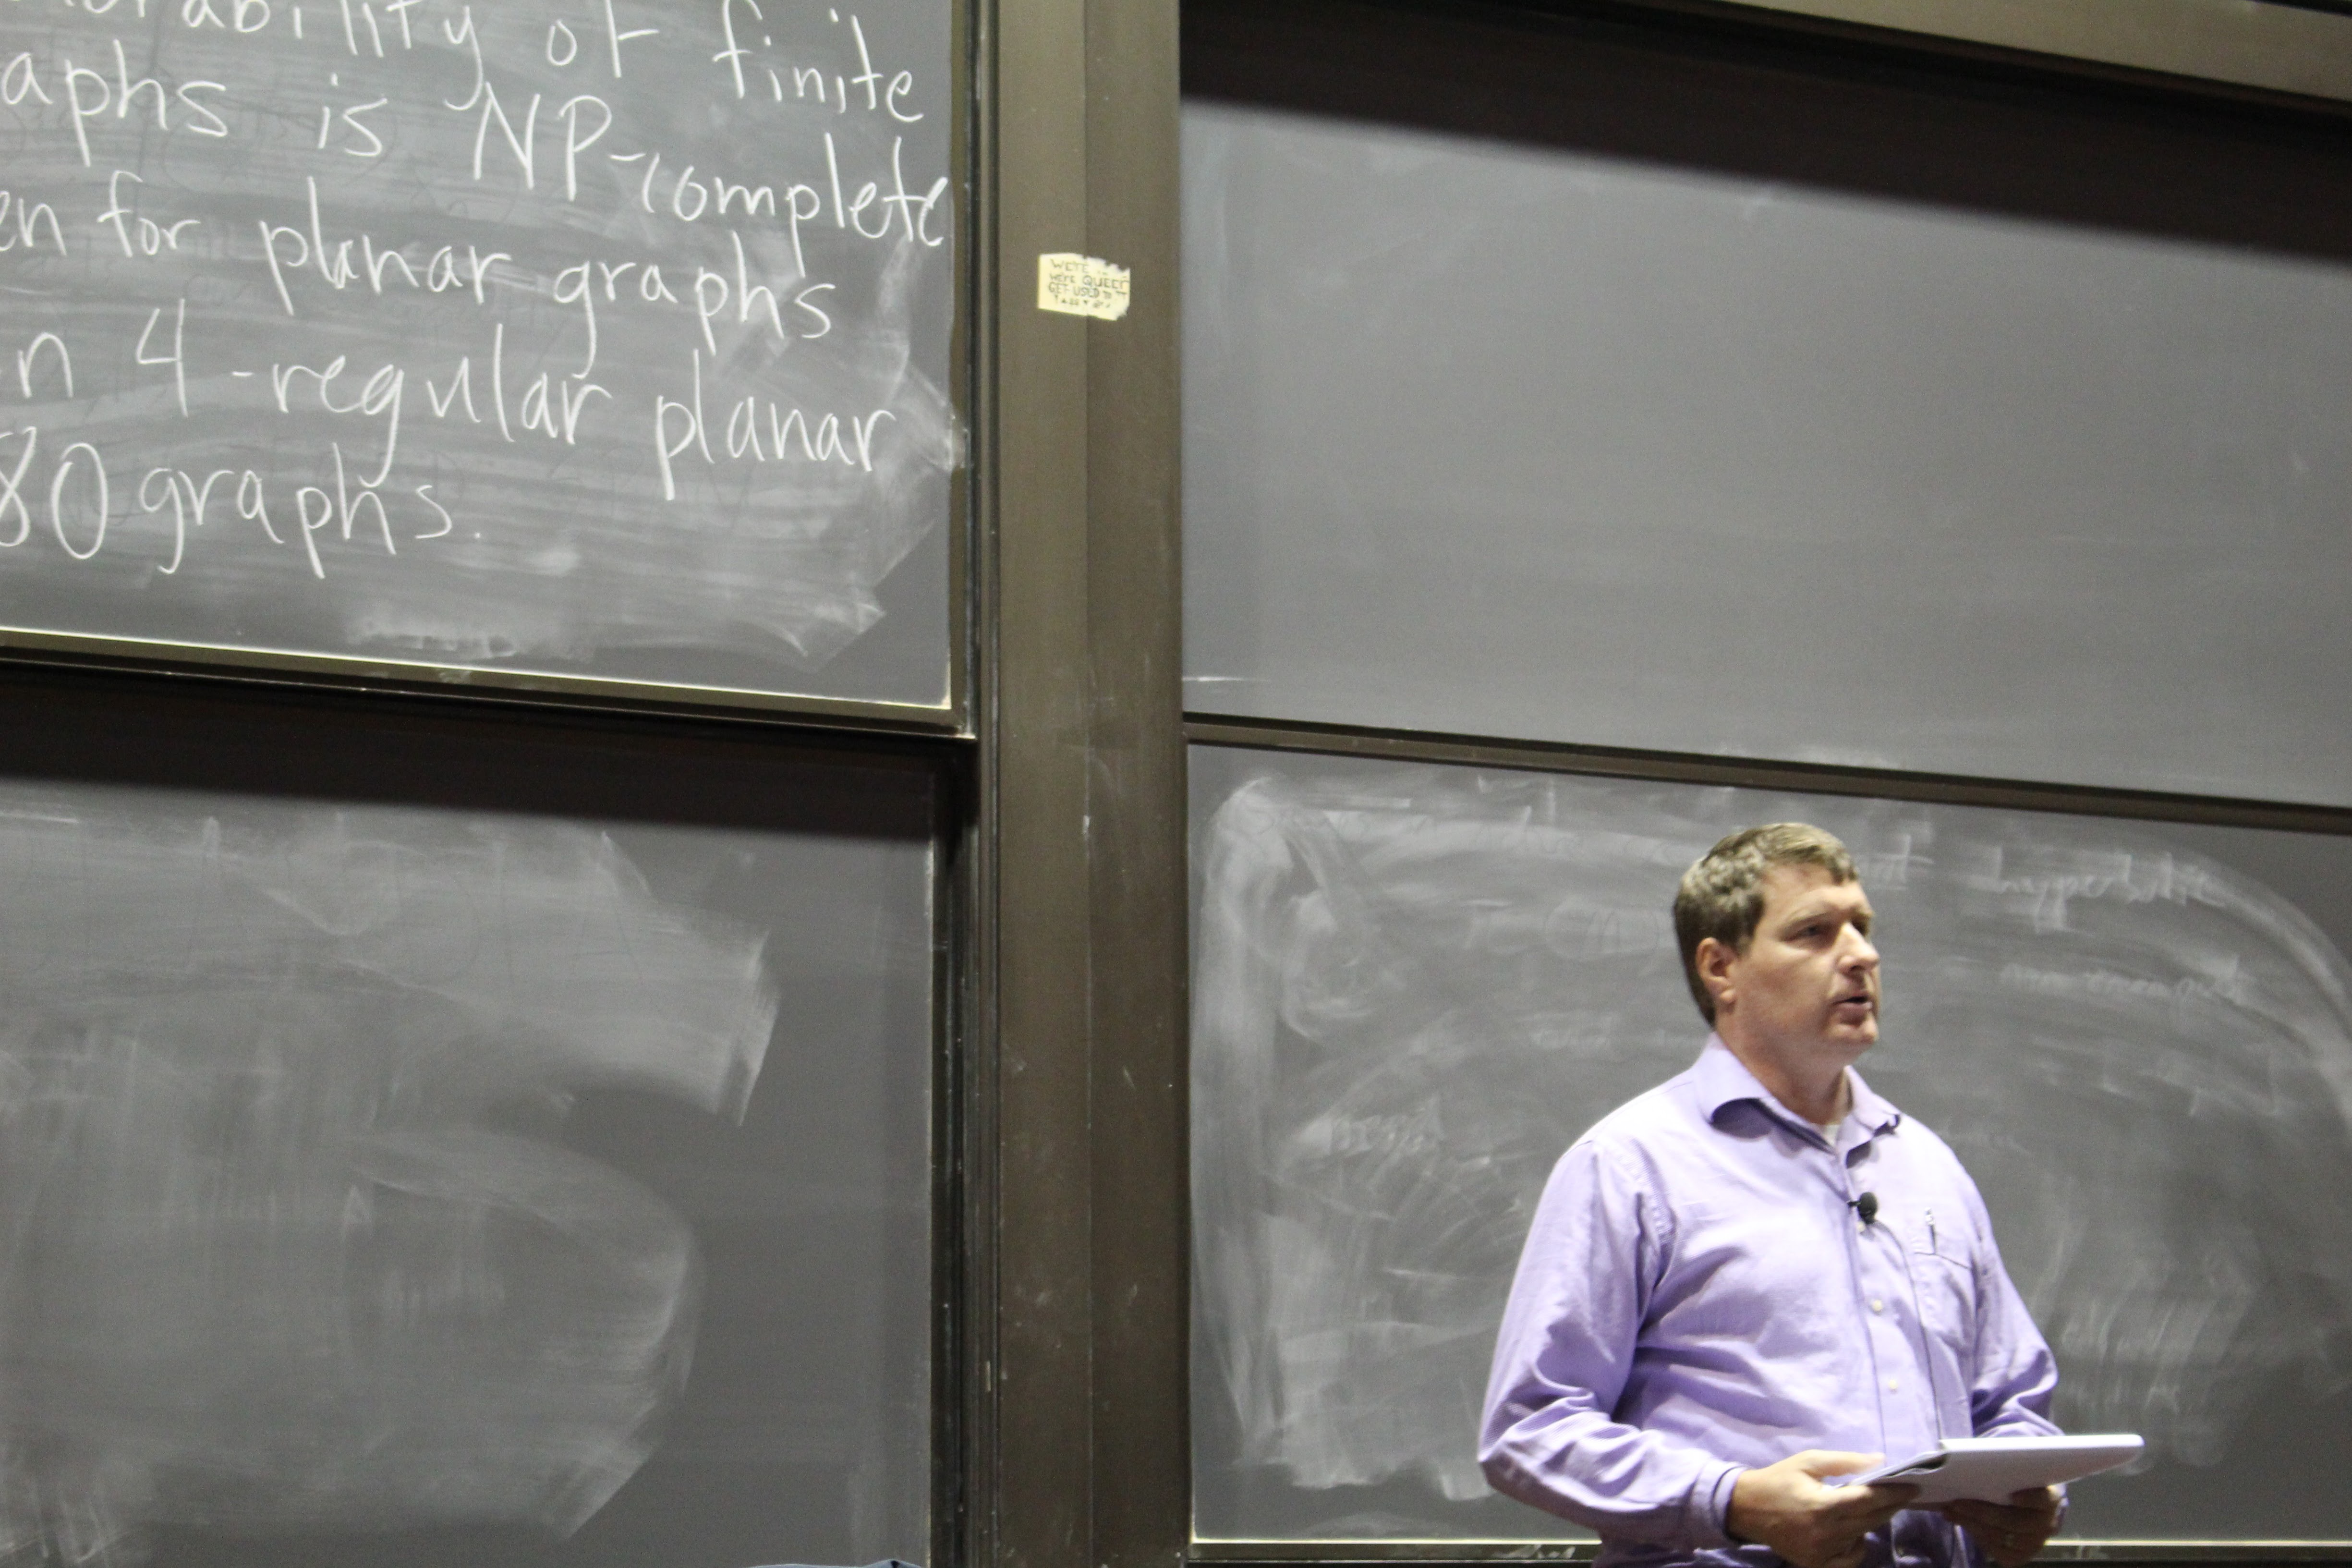 orability of finite
aphs is NP-complete
en for planar graphs
n 4-regular planar
80 graphs.
WE'RE
WE'RE QUEER
GET USED TO
hyperbolic